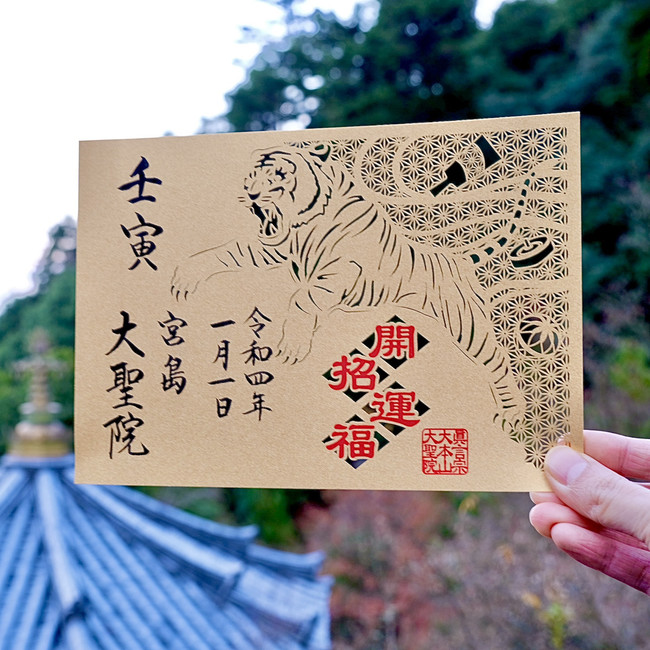 開運
招福
令和四年
一月一日
宮島
壬寅
大聖院
眞言宗
大本山
大聖院